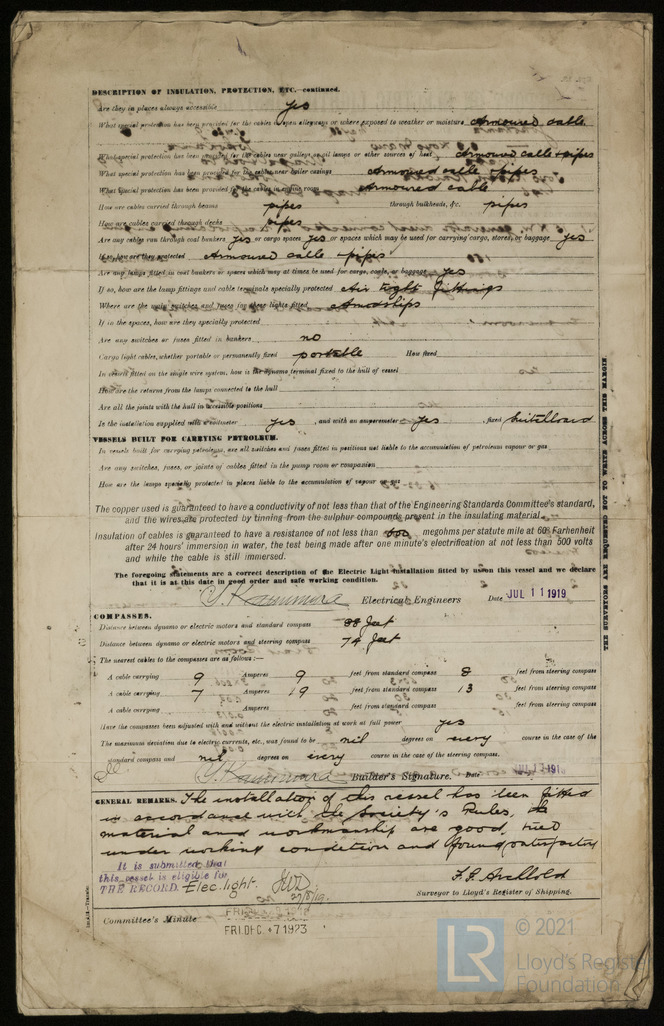 DESCRIPTION OF INSULATION, PROTECTION, ETC.—continued.
Are they in places always accessible yes
What special protection has been provided for the cables in open alleyways or where exposed to weather or moisture Armoured cable
What special protection has been provided for the cables near galleys or oil lamps or other sources of heat Armoured cable & pipes
What special protection has been provided for the cables near boiler casings Armoured cable & pipes
What special protection has been provided for the cables in engine room Armoured cable
How are cables carried through beams pipes through bulkheads, &c. pipes
How are cables carried through decks pipes
Are any cables run through coal bunkers yes or cargo spaces yes or spaces which may be used for carrying cargo, stores, or baggage yes
If so, how are they protected Armoured cable & pipes
Are any lamps fitted in coal bunkers or spaces which may at times be used for cargo, coals, or baggage yes
If so, how are the lamp fittings and cable terminals specially protected Air tight fittings
Where are the main switches and fuses for these lights fitted Amidships
If in the spaces, how are they specially protected
Are any switches or fuses fitted in bunkers no
Cargo light cables, whether portable or permanently fixed portable How fixed
In vessels fitted on the single wire system, how is the dynamo terminal fixed to the hull of vessel
How are the returns from the lamps connected to the hull
Are all the joints with the hull in accessible positions
Is the installation supplied with a voltmeter yes , and with an amperemeter yes , fixed
VESSELS BUILT FOR CARRYING PETROLEUM.
In vessels built for carrying petroleum, are all switches and fuses fitted in positions not liable to the accumulation of petroleum vapour or gas
Are any switches, fuses, or joints of cables fitted in the pump room or companion
How are the lamps specially protected in places liable to the accumulation of vapour or gas
The copper used is guaranteed to have a conductivity of not less than that of the Engineering Standards Committee's standard,
and the wires are protected by tinning from the sulphur compounds present in the insulating material.
Insulation of cables is guaranteed to have a resistance of not less than 600 megohms per statute mile at 60° Farhenheit
after 24 hours' immersion in water, the test being made after one minute's electrification at not less than 500 volts
and while the cable is still immersed.
The foregoing statements are a correct description of the Electric Light installation fitted by us on this vessel and we declare
that it is at this date in good order and safe working condition.
Electrical Engineers Date JUL 11 1919
COMPASSES.
Distance between dynamo or electric motors and standard compass 88 feet
Distance between dynamo or electric motors and steering compass 74 feet
The nearest cables to the compasses are as follows:—
A cable carrying 9 Amperes 9 feet from standard compass 8 feet from steering compass
A cable carrying 7 Amperes 19 feet from standard compass 13 feet from steering compass
A cable carrying Amperes feet from standard compass feet from steering compass
Have the compasses been adjusted with and without the electric installation at work at full power yes
The maximum deviation due to electric currents, etc., was found to be nil degrees on every course in the case of the
standard compass and nil degrees on every course in the case of the steering compass.
Builder's Signature. Date JUL 1 191
GENERAL REMARKS. The installation of this vessel has been fitted
in accordance with the Society's Rules, the
material and workmanship are good, tried
under working condition and found satisfactory
It is submitted that
this vessel is eligible for
THE RECORD. Elec. light.
27/8/19.
F. F. Archbold
Surveyor to Lloyd's Register of Shipping.
Committee's Minute
FRI. DEC. 7 1923
THIS MARGIN REQUIRED NOT TO WRITE ACROSS THIS MARGIN
LR © 2021
Lloyd's Register
Foundation